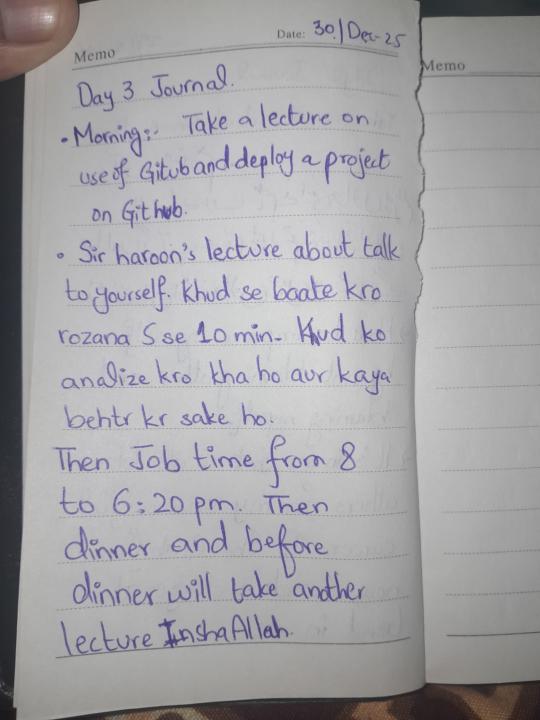 Memo
Date: 30/Dec-25
Memo
Day 3 Journal.
• Morning:- Take a lecture on
use of Gitub and deploy a project
on Github.
• Sir haroon's lecture about talk
to yourself. Khud se baate kro
rozana 5 se 10 min. Khud ko
analize kro kha ho aur kaya
behtr kr sake ho.
Then Job time from 8
to 6:20 pm. Then
dinner and before
dinner will take another
lecture InshaAllah.